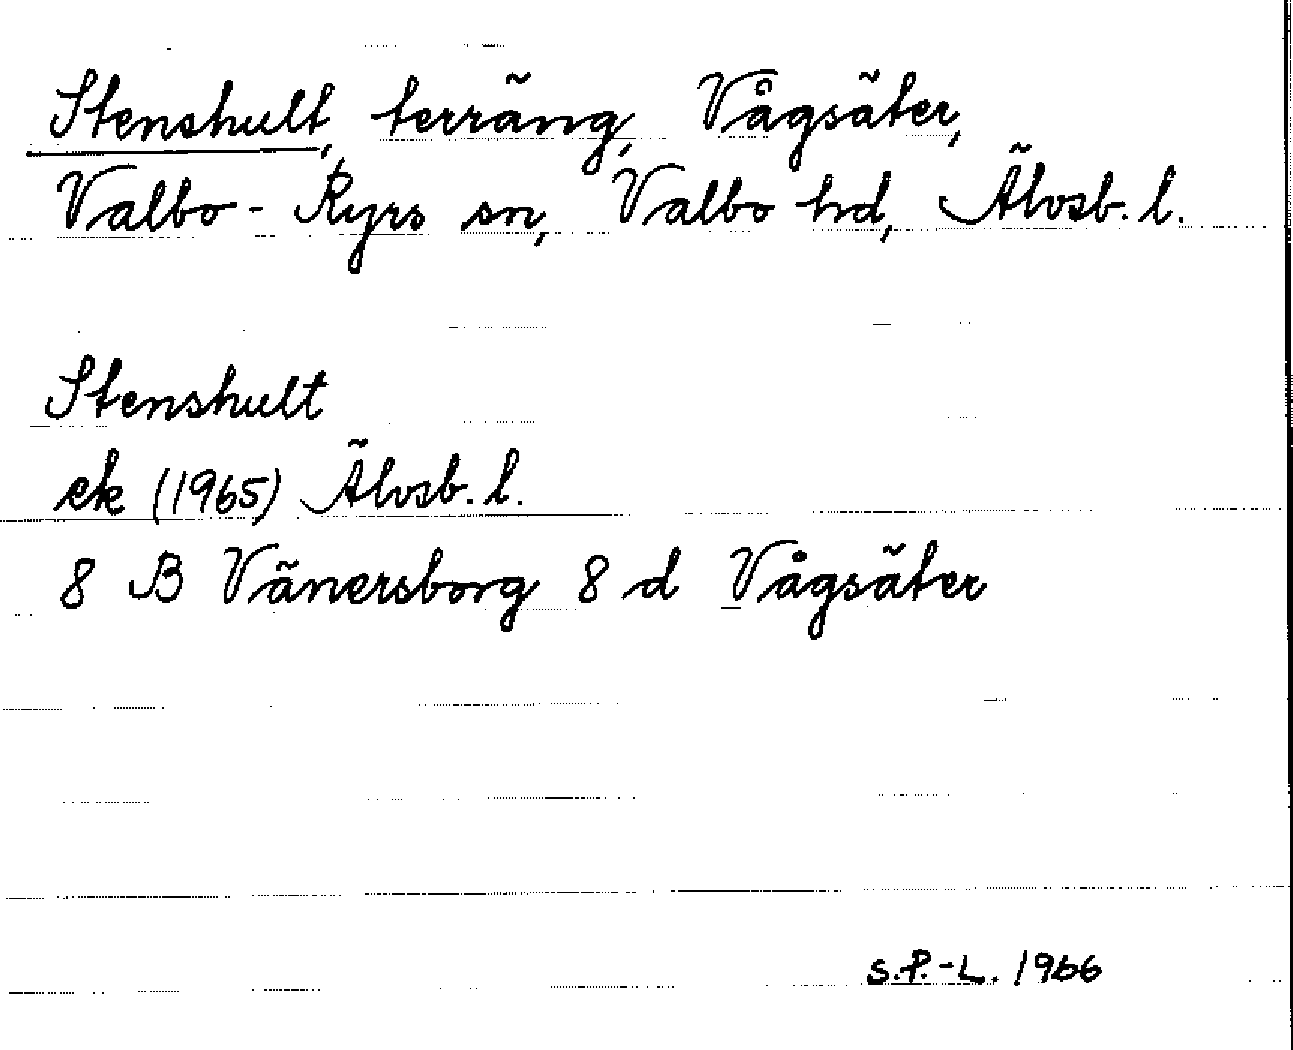 Stenshult, terräng, Vågsäter,
Valbo-Ryrs sn, Valbo hd, Älvsb. l.
Stenshult
ek (1965) Älvsb. l.
8 B Vänersborg 8 d Vågsäter
S.P.-L. 1966